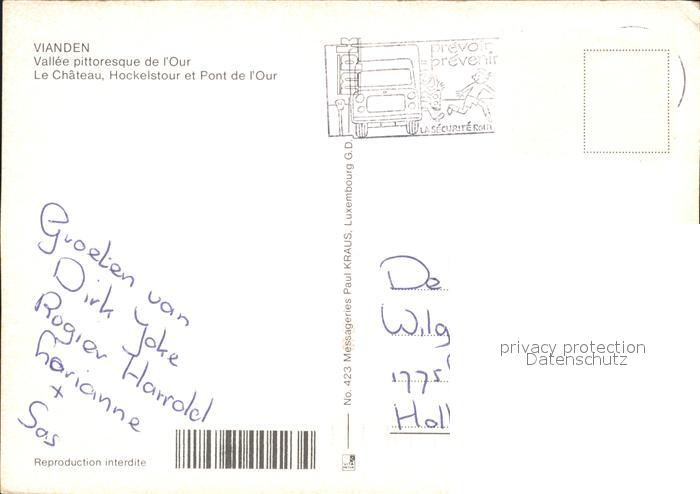 VIANDEN
Vallée pittoresque de l'Our
Le Château, Hockelstour et Pont de l'Our
prévoir
prévenir
LA SÉCURITÉ ROUT
No. 423 Messageries Paul KRAUS, Luxembourg G.D.
Groeten van
Dirk Joke
Rogier Harrold
Marianne
x
Sas
De
Wilg
1775
Holl
privacy protection
Datenschutz
Reproduction interdite